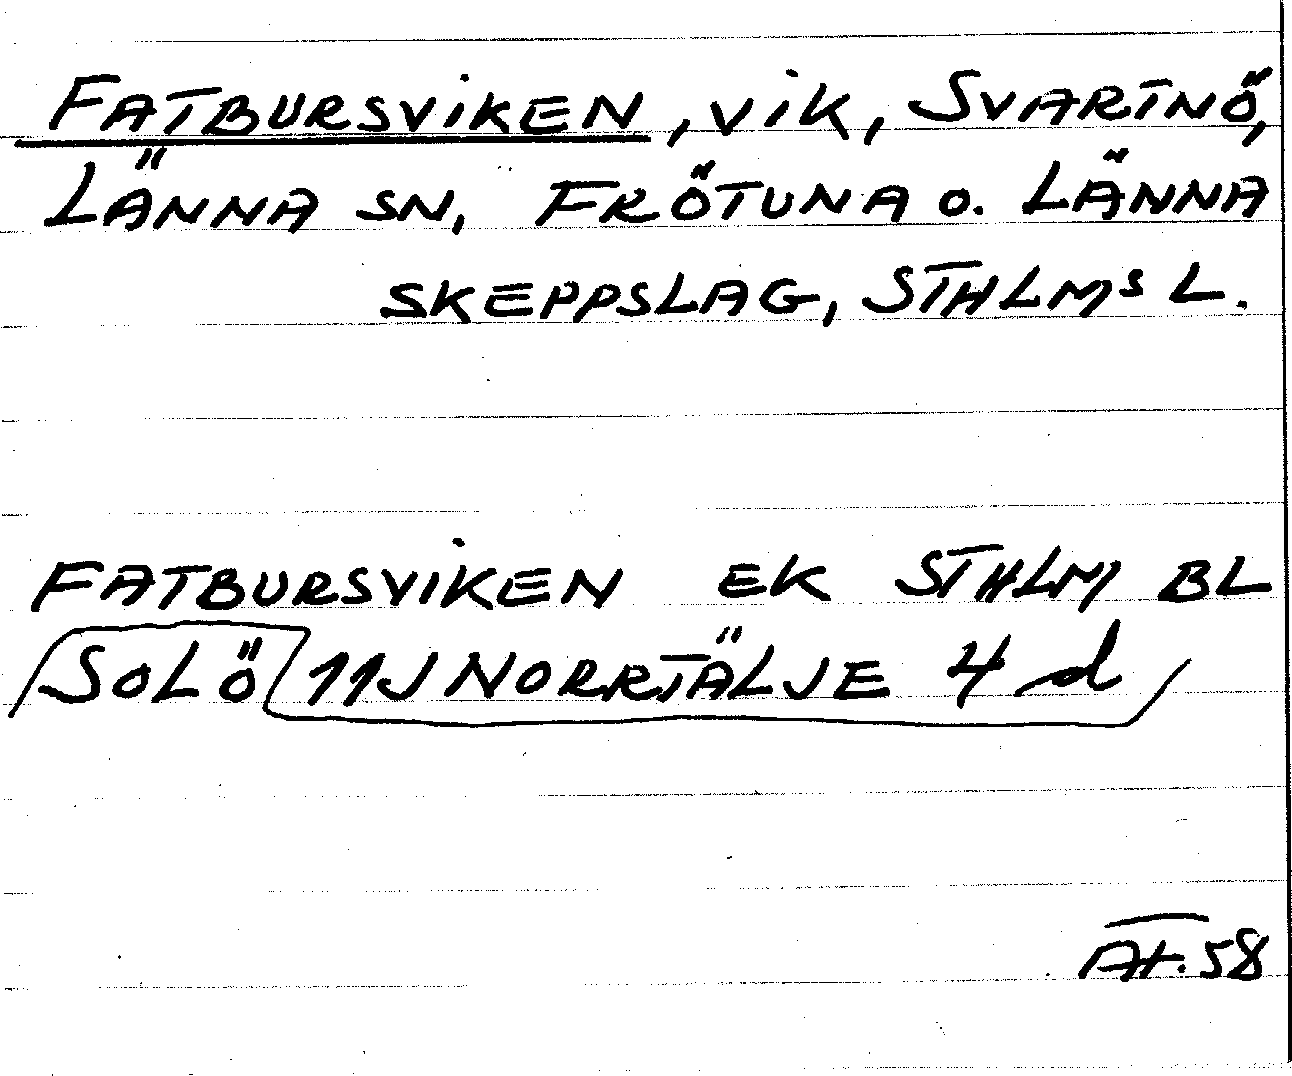 FATBURSVIKEN, VIK, SVARTNÖ,
LÄNNA SN, FRÖTUNA O. LÄNNA
SKEPPSLAG, STHLMS L.
FATBURSVIKEN EK STHLM BL
SOLÖ 11J NORRTÄLJE 4 d
At. 58